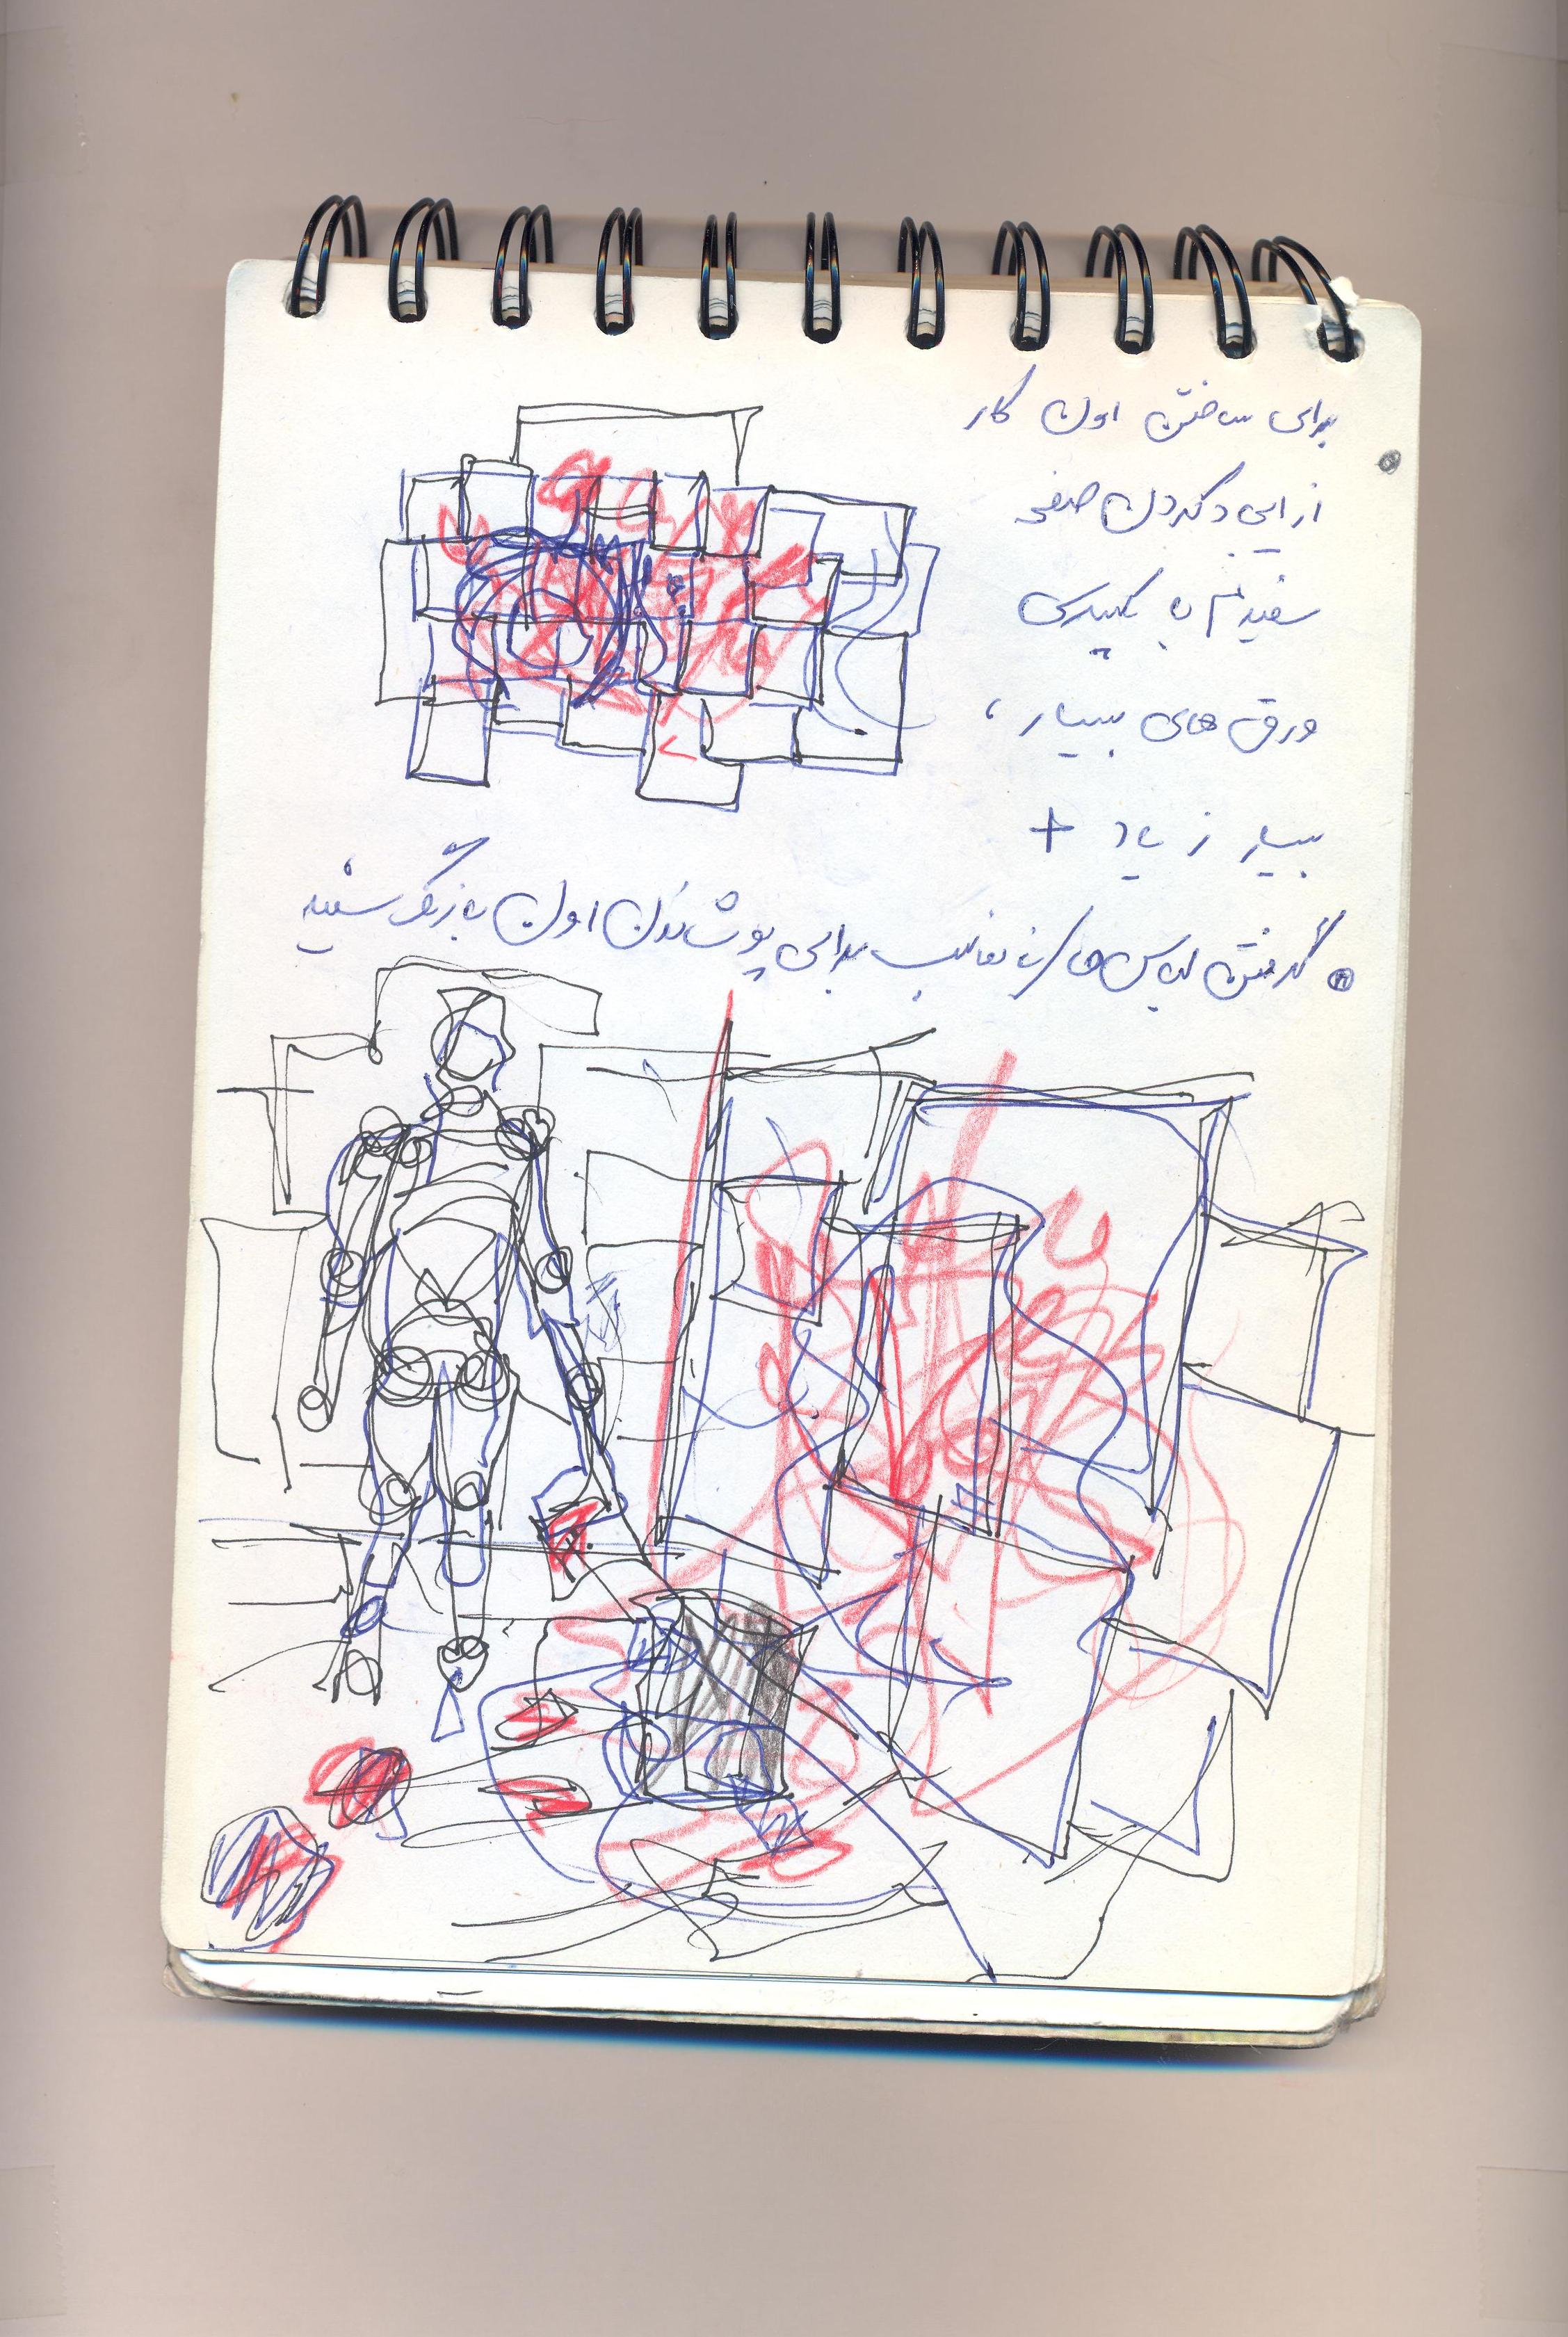 برای ساختن اون کار
از ایجاد کردن صفحه
سفیدم با
ورق های بسیار ،
بسیار زیاد +
گرفتن لباس ها / برای پوشاندن اون با رنگ سفید